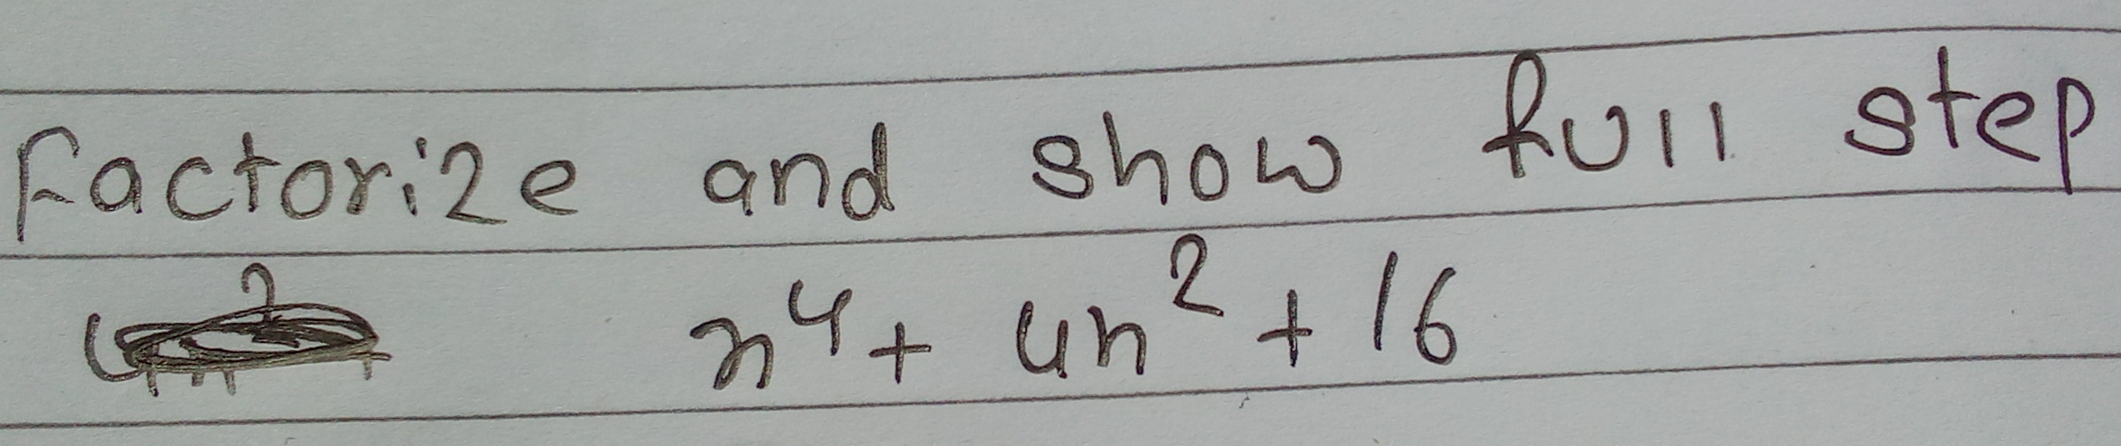 Factorize and show full step
x⁴ + 4x² + 16